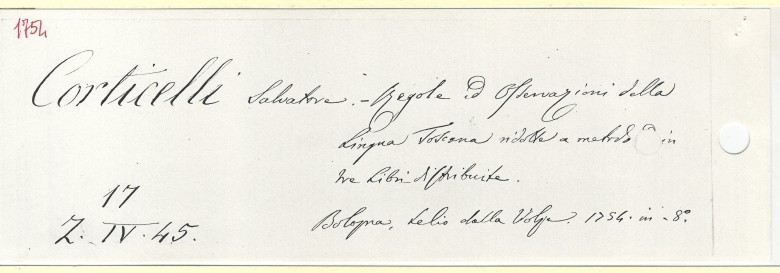 1754
Corticelli Salvatore. - Regole ed Osservazioni della
Lingua Toscana ridotte a metodo in
tre Libri distribuite.
17
Z. IV. 45.
Bologna, Lelio dalla Volpe. 1754. in-8º